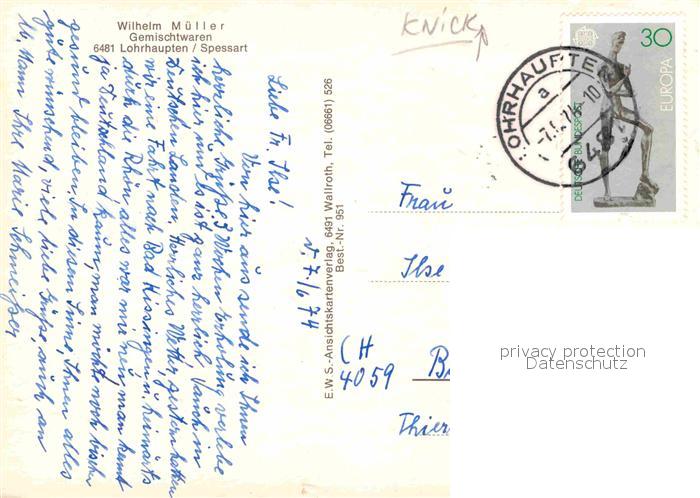 Wilhelm Müller
Gemischtwaren
6481 Lohrhaupten / Spessart
KNICK
Liebe Fr. Ilse!
Von hier aus sende ich Ihnen
herzliche Grüße. 3 Wochen Erholung verlebe
ich hier und es ist ganz herrlich auch in
Deutschen Landen. Herrliches Wetter, gestern hatten
wir eine Fahrt nach Bad Kissingen u. heimwärts
durch die Rhön alles war mir neu, man kennt
ja Deutschland kaum, man möchte noch bischen
gesund bleiben. In diesem Sinne, Ihnen alles
gute wünschend, viele liebe Grüße, auch an
Ib. Mann Ihre Marie Schneitzer
v. 7./6 74
E.W.S.-Ansichtskartenverlag, 6491 Wallroth, Tel. (06661) 526
Best.-Nr. 951
30
EUROPA
DEUTSCHE BUNDESPOST
LOHRHAUPTEN
a
648
Frau
Ilse
CH
4059 B
Thier
privacy protection
Datenschutz